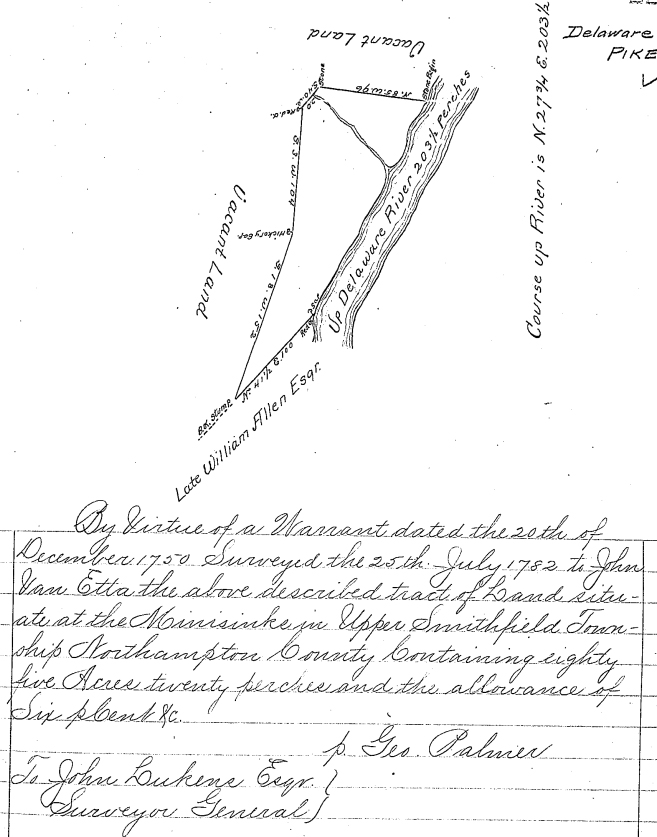 Vacant Land
Delaware
PIKE
Course up River is N. 27¾ E. 203½
Stone Begin
N. 85. W. 96
Stone
S. 40. E.
20
Red. o.
S. 3. W. 104
Vacant Land
Hickory Sap.
S. 18. W. 152
Up Delaware River 203½ Perches
N. 41½ E. 100
Bot. Stump
Late William Allen Esqr.
By Virtue of a Warrant dated the 20th of
December 1750 Surveyed the 25th July 1782 to John
Van Etta the above described tract of Land situ-
ate at the Minisinks in Upper Smithfield Town-
ship Northampton County Containing eighty
five Acres twenty perches and the allowance of
Six p Cent &c.
p. Geo. Palmer
To John Lukens Esqr. }
Surveyor General }